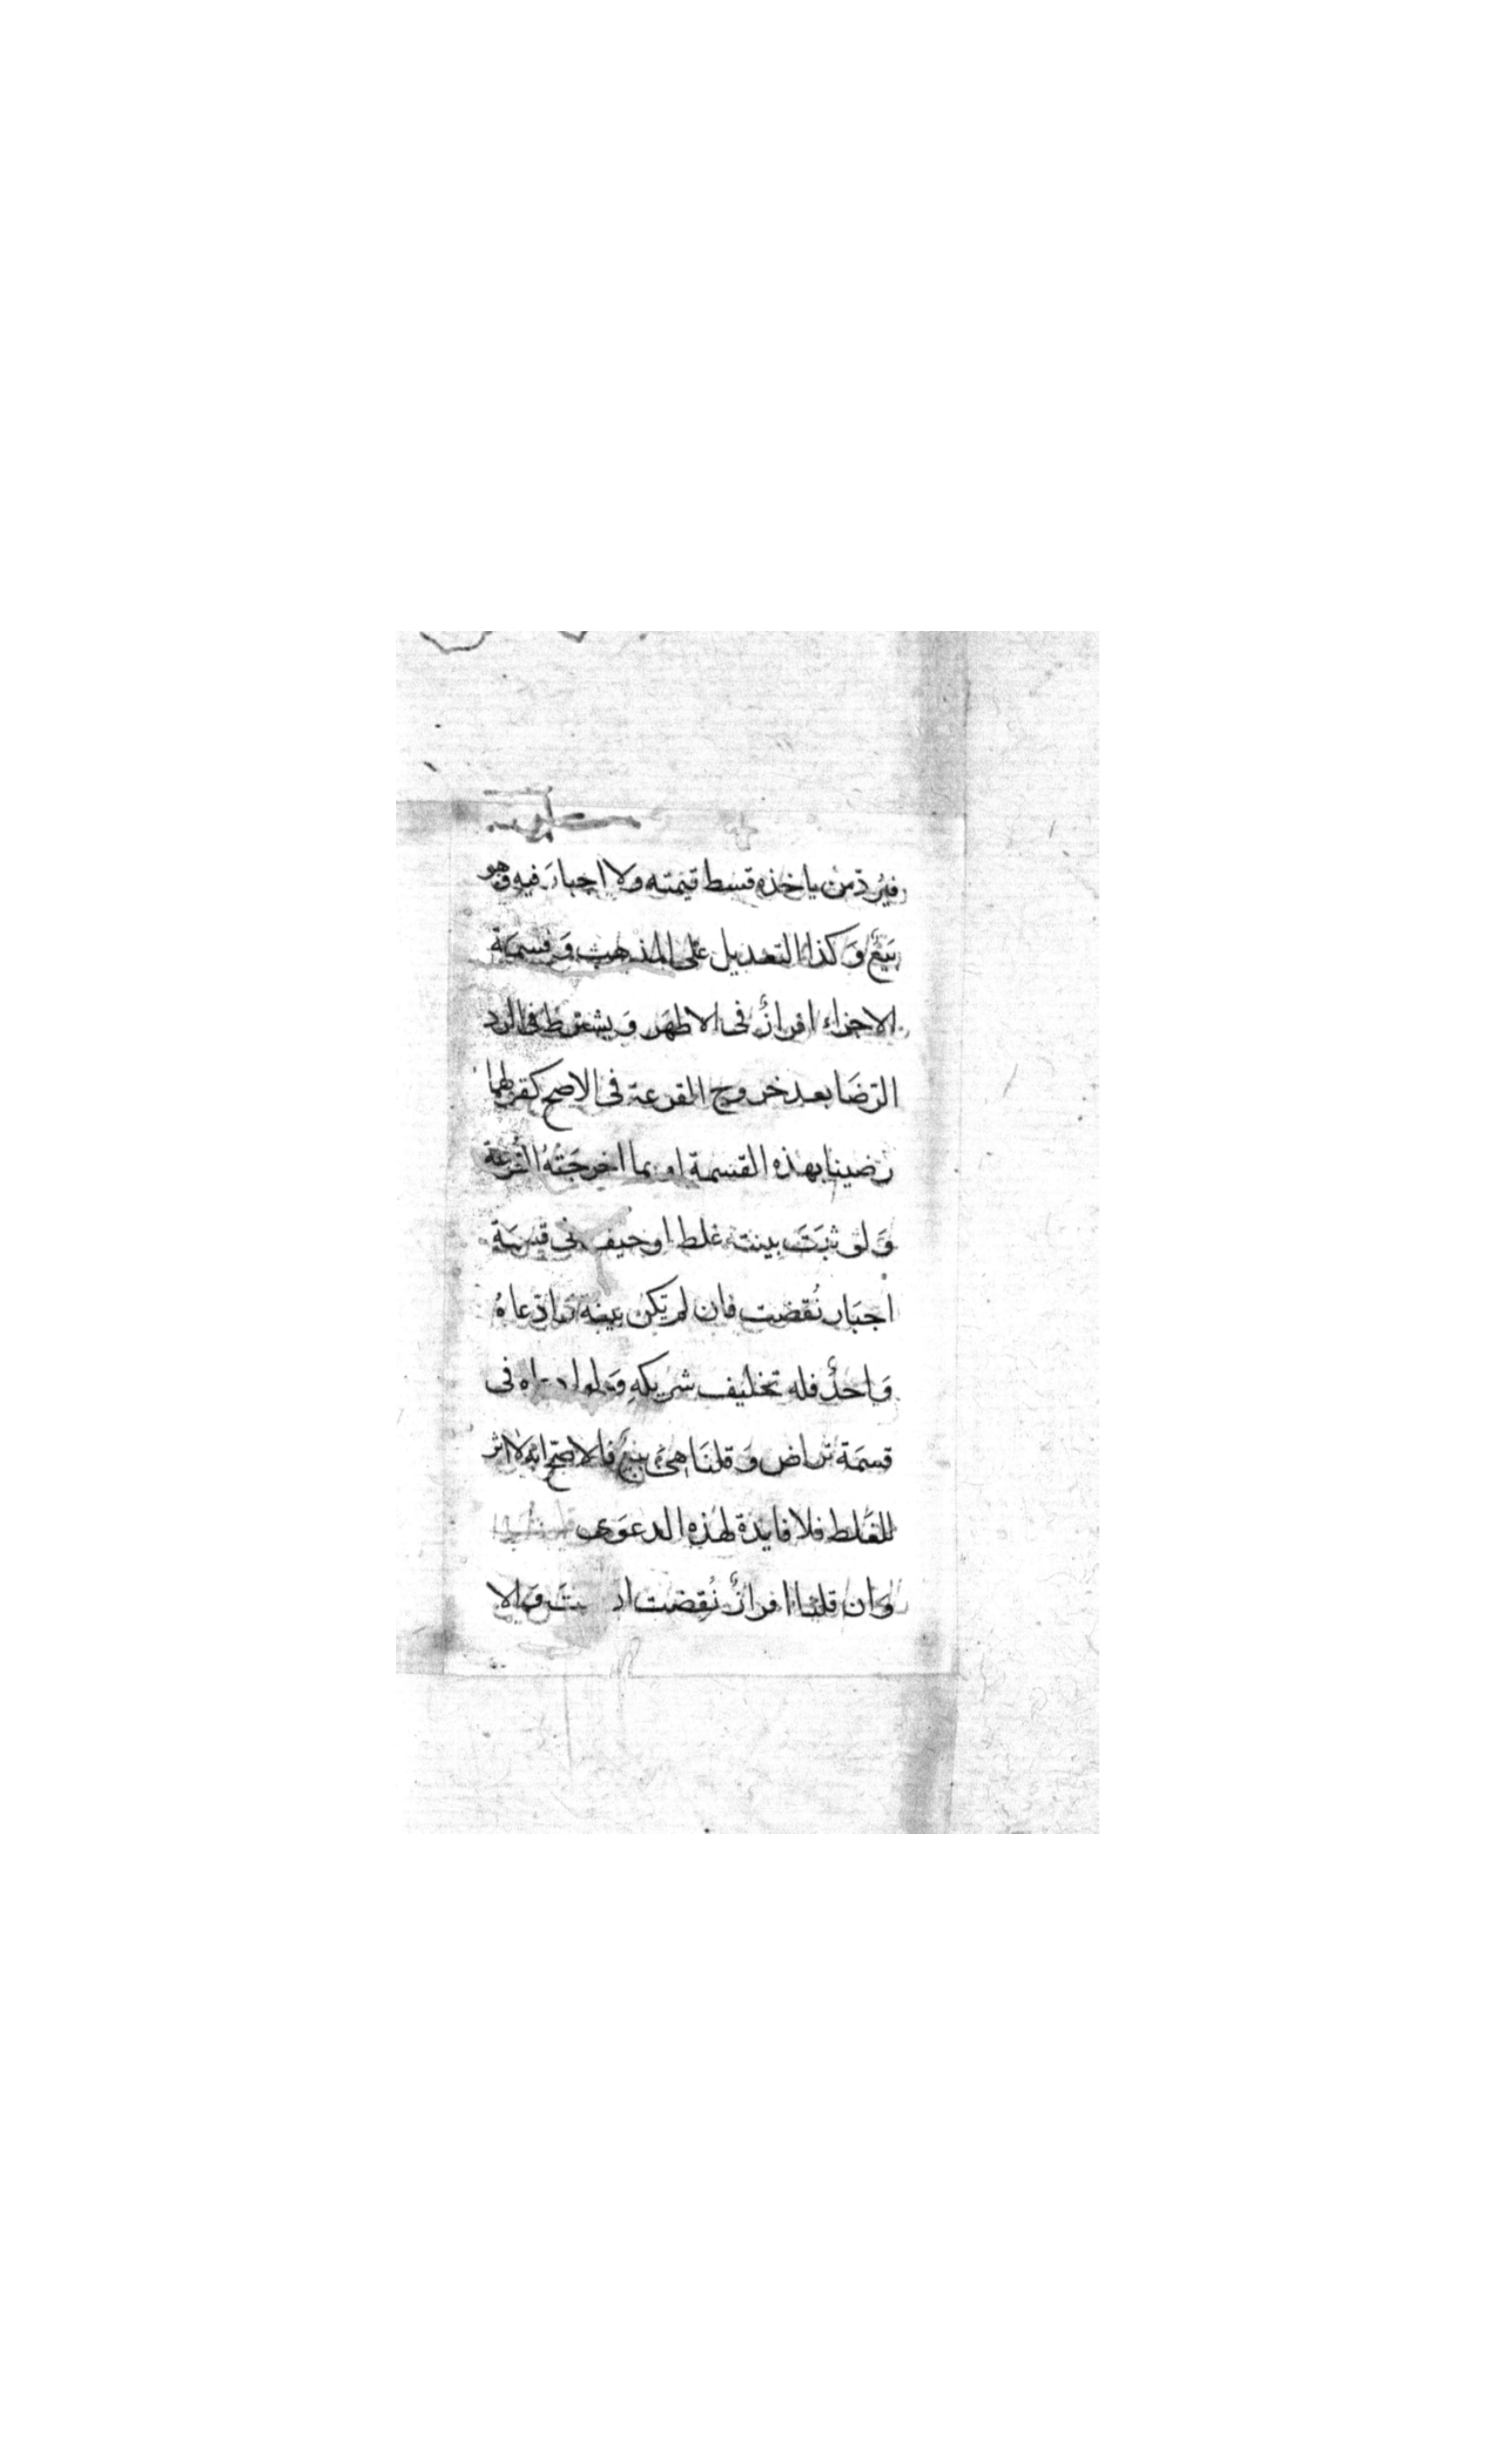 فيُردّ من ياخذه قسط قيمته ولا اجبارَ فيه وَهو
بَيْعٌ وَكذا التعديل على المذهب وَ قسمَة
الاجزاء افرازٌ فى الاظهَر وَ يشترط فى الرد
الرّضَا بعد خروج القرعة فى الاصح كقولهما
رضينا بهذه القسمة او بما اخرجَتهُ القرعَة
وَلو ثبَتَ ببينته غلط او حيف فى قسمَة
اجبَار نُقضت فان لم تكن بينة وَادّعاهُ
وَاحدٌ فله تحليف شريكهِ وَلو اد اه فى
قسمَة تراض وَ قلنَا هىَ بيعٌ فالاصحّ انه لا اثر
للغَلط فلا فايدة لهذه الدعوَى
وَان قلنا افرازٌ نُقضت ان وَالا